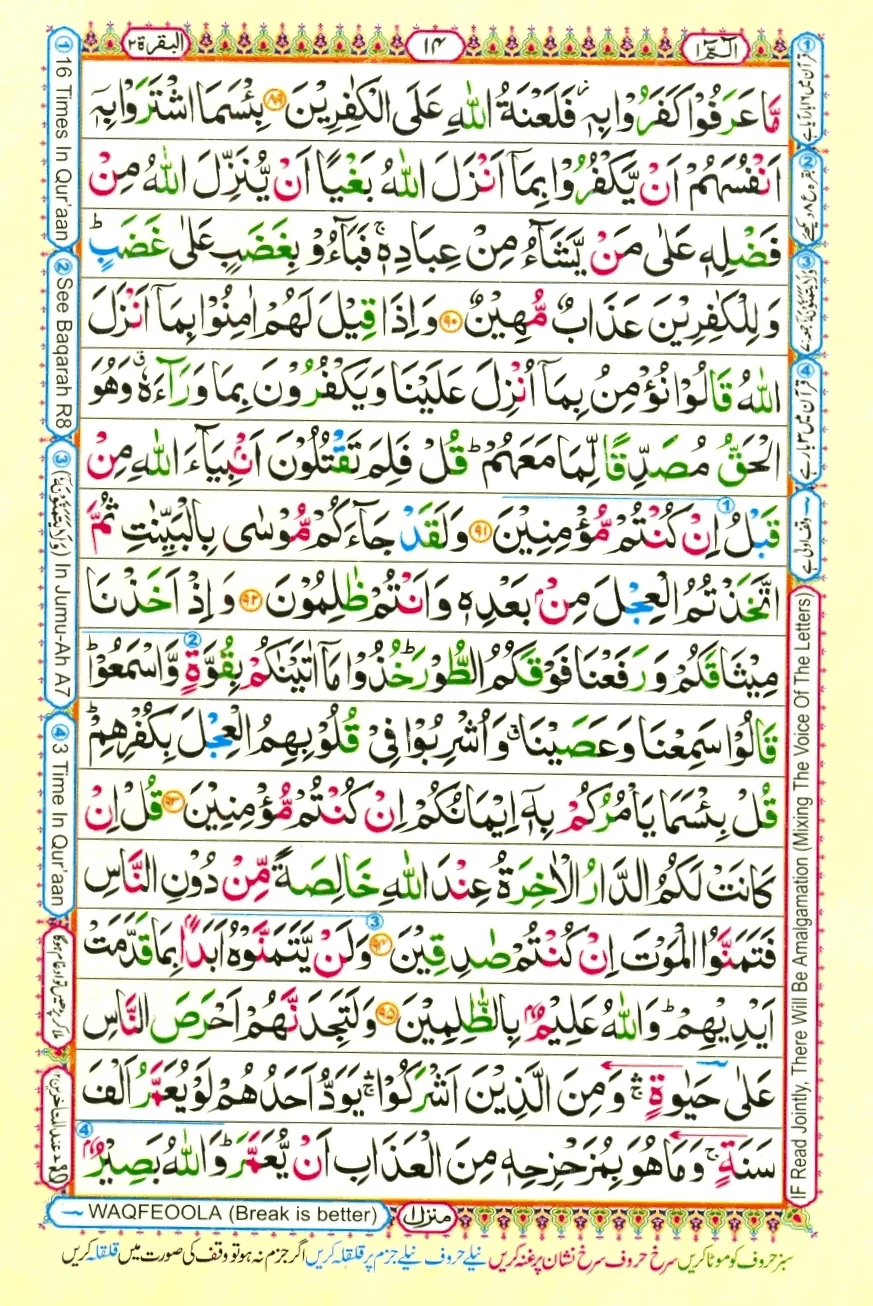 الٓمّٓ ١
١٤
البقرة ٢
مَّا عَرَفُوْا كَفَرُوْا بِهٖ٘ فَلَعْنَةُ اللّٰهِ عَلَى الْكٰفِرِيْنَ ﴿۸۹﴾ بِئْسَمَا اشْتَرَوْا بِهٖۤ
اَنْفُسَهُمْ اَنْ يَّكْفُرُوْا بِمَاۤ اَنْزَلَ اللّٰهُ بَغْيًا اَنْ يُّنَزِّلَ اللّٰهُ مِنْ
فَضْلِهٖ عَلٰى مَنْ يَّشَآءُ مِنْ عِبَادِهٖ ۚ فَبَآءُوْ بِغَضَبٍ عَلٰى غَضَبٍ ؕ
وَ لِلْكٰفِرِيْنَ عَذَابٌ مُّهِيْنٌ ﴿۹۰﴾ وَ اِذَا قِيْلَ لَهُمْ اٰمِنُوْا بِمَاۤ اَنْزَلَ
اللّٰهُ قَالُوْا نُؤْمِنُ بِمَاۤ اُنْزِلَ عَلَيْنَا وَ يَكْفُرُوْنَ بِمَا وَرَآءَهٗ ۗ وَ هُوَ
الْحَقُّ مُصَدِّقًا لِّمَا مَعَهُمْ ؕ قُلْ فَلِمَ تَقْتُلُوْنَ اَنْۢبِيَآءَ اللّٰهِ مِنْ
قَبْلُ اِنْ كُنْتُمْ مُّؤْمِنِيْنَ ﴿۹۱﴾ وَ لَقَدْ جَآءَكُمْ مُّوْسٰى بِالْبَيِّنٰتِ ثُمَّ
اتَّخَذْتُمُ الْعِجْلَ مِنْۢ بَعْدِهٖ وَ اَنْتُمْ ظٰلِمُوْنَ ﴿۹۲﴾ وَ اِذْ اَخَذْنَا
مِيْثَاقَكُمْ وَ رَفَعْنَا فَوْقَكُمُ الطُّوْرَ ؕ خُذُوْا مَاۤ اٰتَيْنٰكُمْ بِقُوَّةٍ وَّ اسْمَعُوْا ؕ
قَالُوْا سَمِعْنَا وَ عَصَيْنَا ۗ وَ اُشْرِبُوْا فِيْ قُلُوْبِهِمُ الْعِجْلَ بِكُفْرِهِمْ ؕ
قُلْ بِئْسَمَا يَاْمُرُكُمْ بِهٖۤ اِيْمَانُكُمْ اِنْ كُنْتُمْ مُّؤْمِنِيْنَ ﴿۹۳﴾ قُلْ اِنْ
كَانَتْ لَكُمُ الدَّارُ الْاٰخِرَةُ عِنْدَ اللّٰهِ خَالِصَةً مِّنْ دُوْنِ النَّاسِ
فَتَمَنَّوُا الْمَوْتَ اِنْ كُنْتُمْ صٰدِقِيْنَ ﴿۹۴﴾ وَ لَنْ يَّتَمَنَّوْهُ اَبَدًۢا بِمَا قَدَّمَتْ
اَيْدِيْهِمْ ؕ وَ اللّٰهُ عَلِيْمٌۢ بِالظّٰلِمِيْنَ ﴿۹۵﴾ وَ لَتَجِدَنَّهُمْ اَحْرَصَ النَّاسِ
عَلٰى حَيٰوةٍ ۛۚ وَ مِنَ الَّذِيْنَ اَشْرَكُوْا ۛۚ يَوَدُّ اَحَدُهُمْ لَوْ يُعَمَّرُ اَلْفَ
سَنَةٍ ۚ وَ مَا هُوَ بِمُزَحْزِحِهٖ مِنَ الْعَذَابِ اَنْ يُّعَمَّرَ ؕ وَ اللّٰهُ بَصِيْرٌۢ
① 16 Times In Qur'aan
② See Baqarah R8
③ (وَلَا يَتَمَنَّوْنَهٗ) In Jumu-Ah A7
④ 3 Time In Qur'aan
④ قرآن میں ۳ بار ہے
وقف اولیٰ ہے
IF Read Jointly, There Will Be Amalgamation (Mixing The Voice Of The Letters)
WAQFEOOLA (Break is better)
منزل ١
سبز حروف کو موٹا کریں سرخ حروف سرخ نشان پر غنہ کریں نیلے حروف نیلے جزم پر قلقلہ کریں اگر جزم نہ ہو تو وقف کی صورت میں قلقلہ کریں